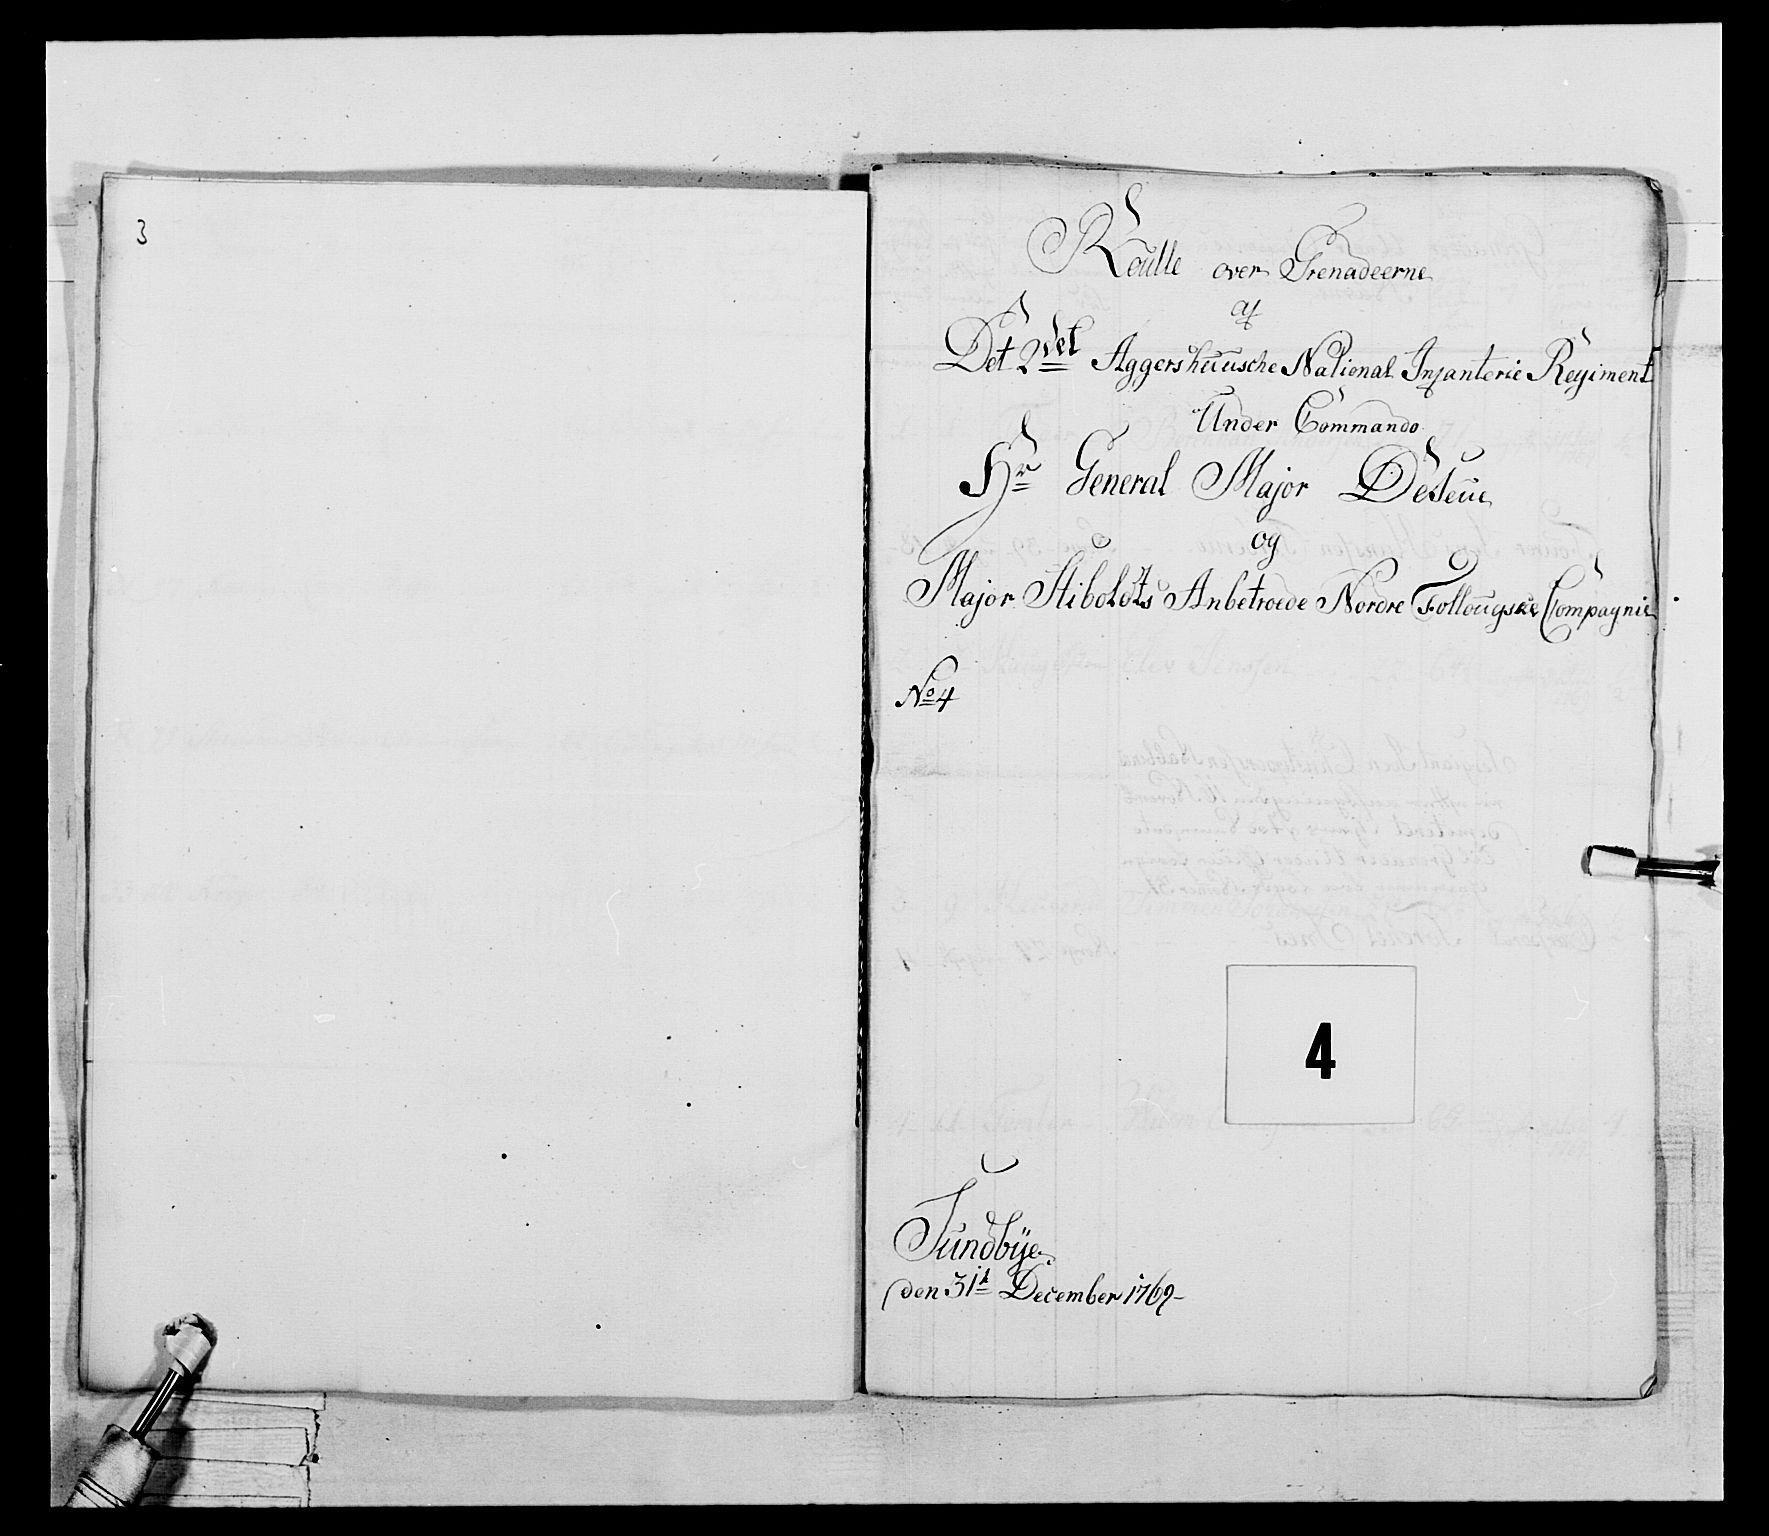 3
Roulle over Grenadeerne
af
Det 2det Aggershuusche National Infanterie Regiment
Under Commando
Hr General Major Deseuе
og
Major Stiboldts Anbetroede Nordre Follougske Compagnie
No 4
4
Sundbÿe
den 31t December 1769